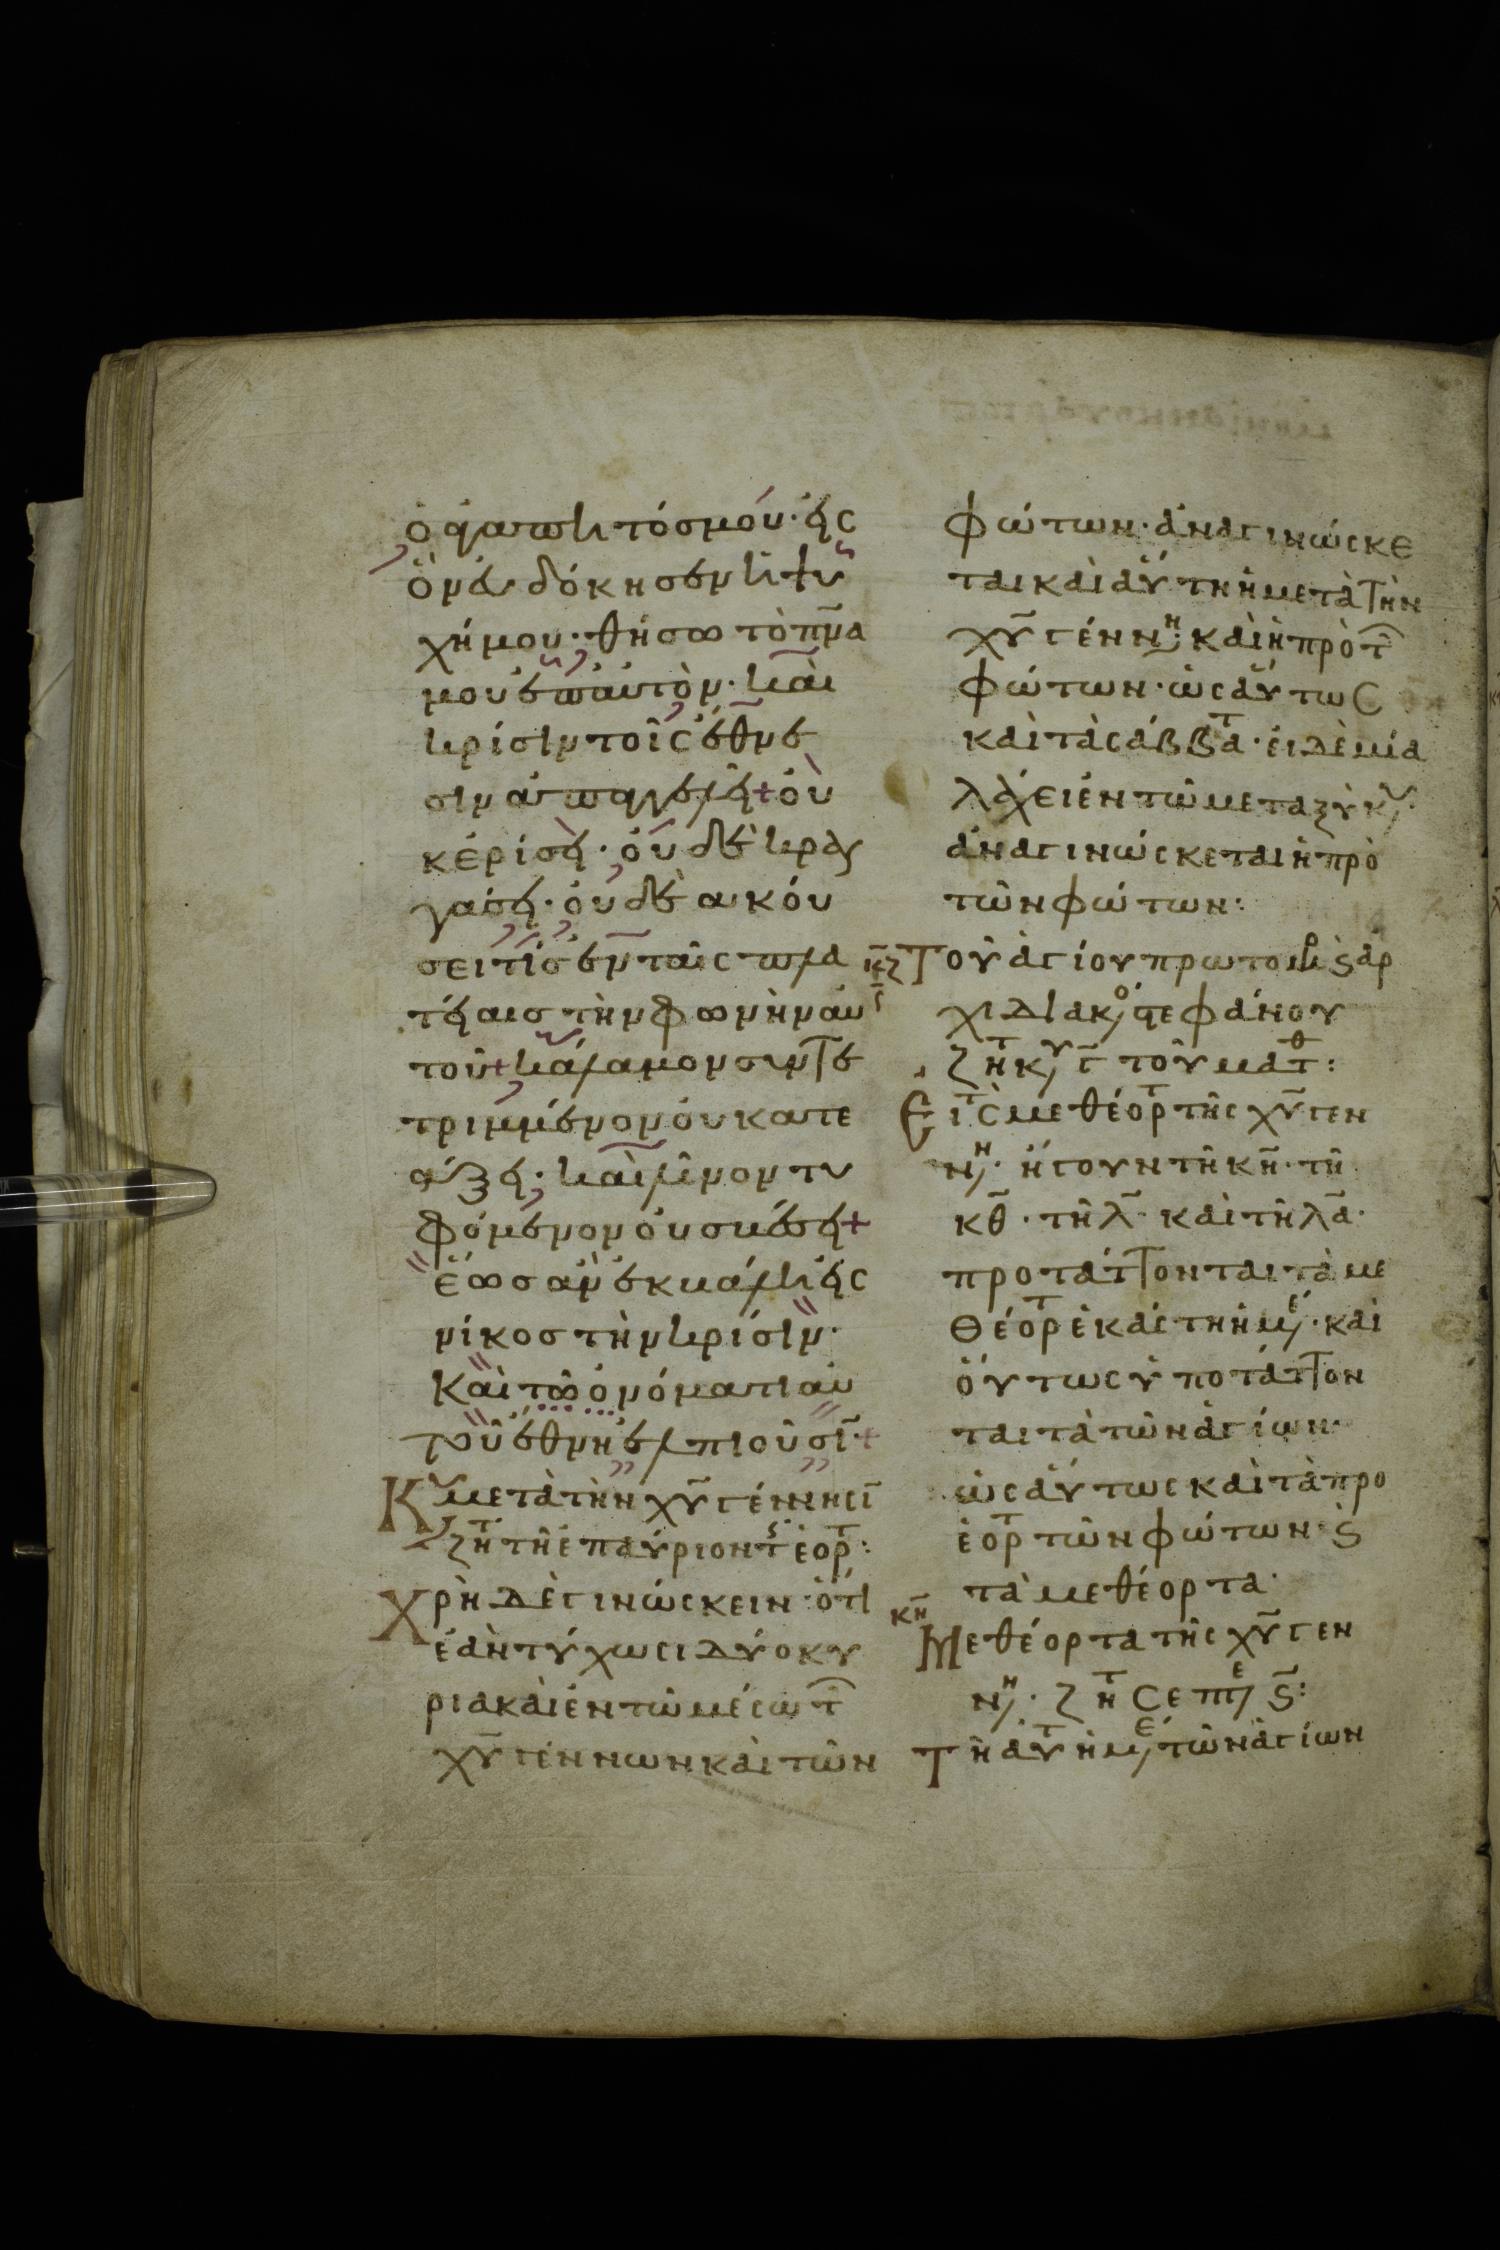 ὁ ἀγαπητός μου· εἰς
ὃν εὐδόκησεν ἡ ψυ
χή μου· θήσω το πν̅α
μου ἐπ' αὐτὸν· καὶ
κρίσιν τοῖς ἔθνε
σιν ἀπαγγελεῖ + οὐ
κ ἐρίσει· οὐδὲ κραυ
γάσει· οὐδὲ ἀκού
σει τίς ἐν ταῖς πλα
τείαις τὴν φωνὴν αὐ
τοῦ + κάλαμον συντε
τριμμένον οὐ κατε
άξει· καὶ λίνον τυ
φόμενον οὐ σβέσει +
ἕως ἂν ἐκβάλῃ εἰς
νίκος τὴν κρίσιν·
Καὶ τῶ ὀνόματι αὐ
τοῦ ἔθνη ἐλπιοῦσι̅ +
Κυ μετὰ τὴν χυ̅ γέννησι̅
ζητ τῆ ἐπαύριον τς ἑορτ:
Χρὴ δὲ γινώσκειν ὅτι
ἐὰν τύχωσι δύο κυ
ριακαὶ ἐν τῶ μέσω τ
χυ̅ γέννων καὶ τῶν
φώτων· ἀναγινώσκε
ται καὶ αὕτη ἡ μετὰ τὴν
χυ̅ γέννη· καὶ ἡ πρὸ τ
φώτων· ὡσαύτως
καὶ τὰ σάββατ α· εἰ δὲ μία
λάχει ἐν τῶ μεταξὺ κυ
ἀναγινώσκεται ἡ πρὸ
τῶν φώτων:
κζ Τοῦ ἁγίου πρωτομ ϛ ἀρ
χιδιακο στεφάνου
ζητ κυ γ̅ τοῦ ματθ:
Εἰς τ μεθέορτ τῆς χυ̅ γεν
νη· ἤγουν τῆ κη̅· τῆ
κθ̅· τῆ λ̅· καὶ τῆ λα̅·
προτάττονται τὰ με
θέορτ ἑκάστη ἡμε· καὶ
οὕτως ὑποτάττον
ται τὰ τῶν ἁγίων·
ὡσαύτως καὶ τὰ προ
εορτ τῶν φώτων· ϛ
τὰ μεθέορτα·
κη̅ Μεθέορτα τῆς χυ̅ γεν
νη· ζητ σεπτε ϛ̅:
Τῆ αὐτ ἡμε τῶν ἁγίων